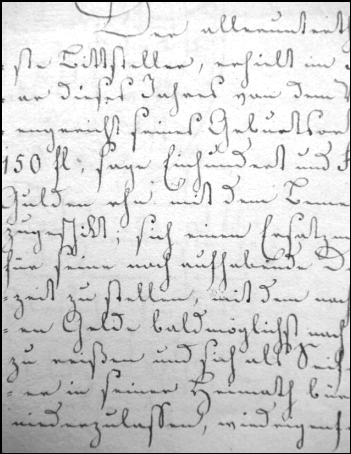 Der alleruntert
ste Bittsteller, erhielt im
ar dieses Jahres von dem
engericht seines Geburtsor
150 fl; sage Einhundert und F
Gulden rhn mit dem Beme
zugeschickt, sich einen Ersatzm
für seine noch aufhabende D
zeit zu stellen, mit dem noch
en Gelde baldmöglichst nach
zu reißen und sich als Seif
er in seiner Heimath bür
niederzulassen, widrigenf